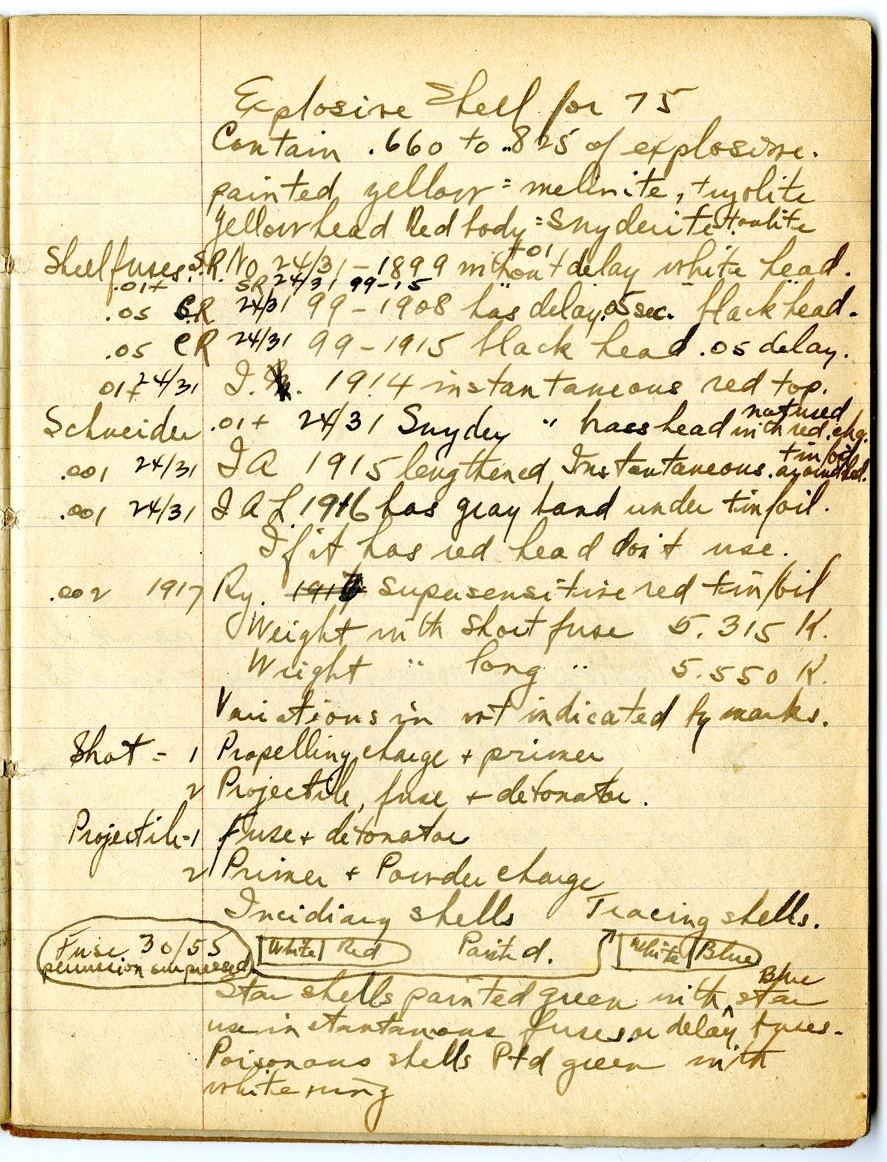 Explosive Shell for 75
Contain .660 to .825 of explosive.
painted yellow = melinite, tryolite
Yellow head Red body = Snyderite
Shell fuses. S.R. No 24/31 - 1899 without delay white head.
.01+ SR 24/31 99-15 +01
.05 SR 24/31 99-1908 has delay .05 sec. black head.
.05 CR 24/31 99-1915 black head .05 delay.
01+ 24/31 I. 1914 instantaneous red top.
Schneider .01+ 24/31 Snyder " brass head not used with red chg.
.001 24/31 I A 1915 lengthened Instantaneous. tin foil around
.001 24/31 I A L 1916 has gray band under tin foil.
If it has red head don't use.
.002 1917 Ry. 1916 supersensitive red tin foil
Weight with Short fuse 5.315 K.
Weight " long " 5.550 K.
Variations in wt indicated by marks.
Shot = 1 Propelling charge + primer
2 Projectile, fuse + detonator.
Projectile = 1 Fuse + detonator
2 Primer + Powder charge
Incidiary shells Tracing shells.
Fuse 30/55 White Red Painted. White Blue
percussion
Star shells painted green with Blue star
use instantaneous fuses or delay fuses.
Poisonous shells Ptd green with
white ring